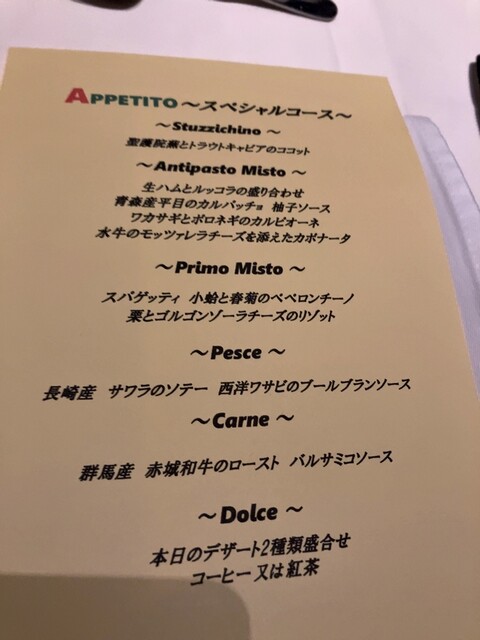 APPETITO～スペシャルコース～
～Stuzzichino～
聖護院蕪とトラウトキャビアのココット
～Antipasto Misto～
生ハムとルッコラの盛り合わせ
青森産平目のカルパッチョ 柚子ソース
ワカサギとポロネギのカルピオーネ
水牛のモッツァレラチーズを添えたカポナータ
～Primo Misto～
スパゲッティ 小蛤と春菊のペペロンチーノ
栗とゴルゴンゾーラチーズのリゾット
～Pesce～
長崎産 サワラのソテー 西洋ワサビのブールブランソース
～Carne～
群馬産 赤城和牛のロースト バルサミコソース
～Dolce～
本日のデザート2種類盛合せ
コーヒー又は紅茶